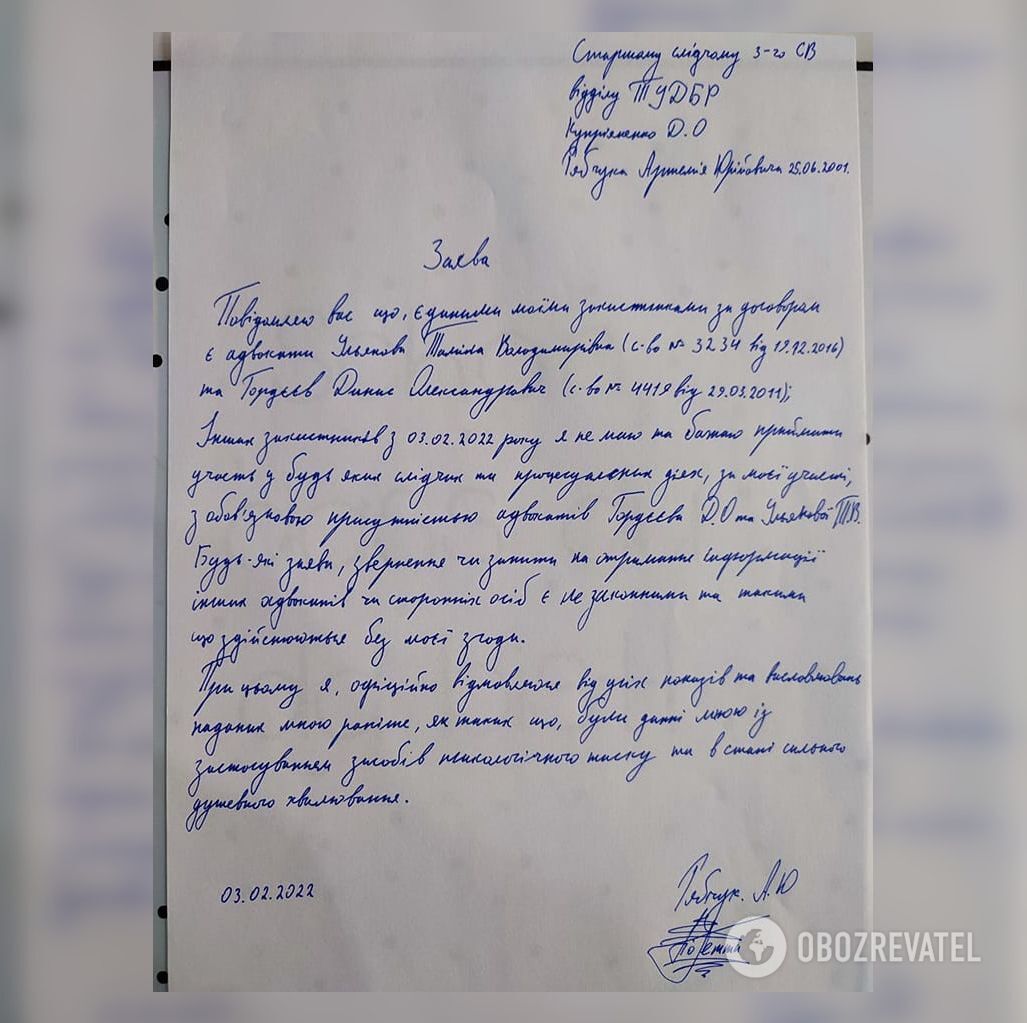 Старшому слідчому 3-го СВ
відділу ТУДБР
Купріяненко Д.О
Рябчука Артемія Юрійовича 25.06.2001.
Заява
Повідомляю вас що, єдиними моїми захистниками за договором
є адвокати Ульянова Таміла Володимирівна (с-во № 3234 від 19.12.2016)
та Гордєєв Динис Олександрович (с-во № 4419 від 29.03.2011);
Інших захистників з 03.02.2022 року я не маю та бажаю приймати
участь у будь яких слідчих та процесуальних діях, за моєї участі,
з обов'язковою присутністью адвокатів Гордєєва Д.О та Ульянової Т.В.
Будь-які заяви, звернення чи запити на отримання інформації
інших адвокатів чи сторонніх осіб є незаконними та такими
що здійснюютьця без моєї згоди.
При цьому я, офіційно відмовляюся від усіх показів та висловлювань
наданих мною раніше, як таких що, були данні мною із
застосуванням засобів психологічного тиску та в стані сильного
душевного хвилювання.
03.02.2022
Рябчук. А.Ю
OBOZREVATEL